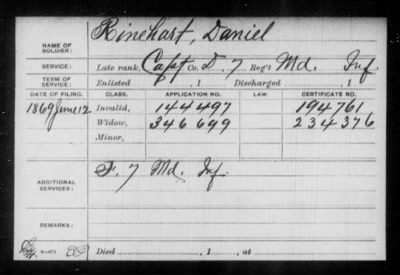 Rinehart, Daniel
NAME OF SOLDIER:
SERVICE: Late rank, Capt Co. D. 7 Reg't Md. Inf.
TERM OF SERVICE: Enlisted , 1 Discharged , 1
DATE OF FILING. CLASS. APPLICATION NO. LAW. CERTIFICATE NO.
1869 June 12 Invalid, 144497 194761
Widow, 346699 234376
Minor,
ADDITIONAL SERVICES: F. 7 Md. Inf.
REMARKS:
Died , 1 , at